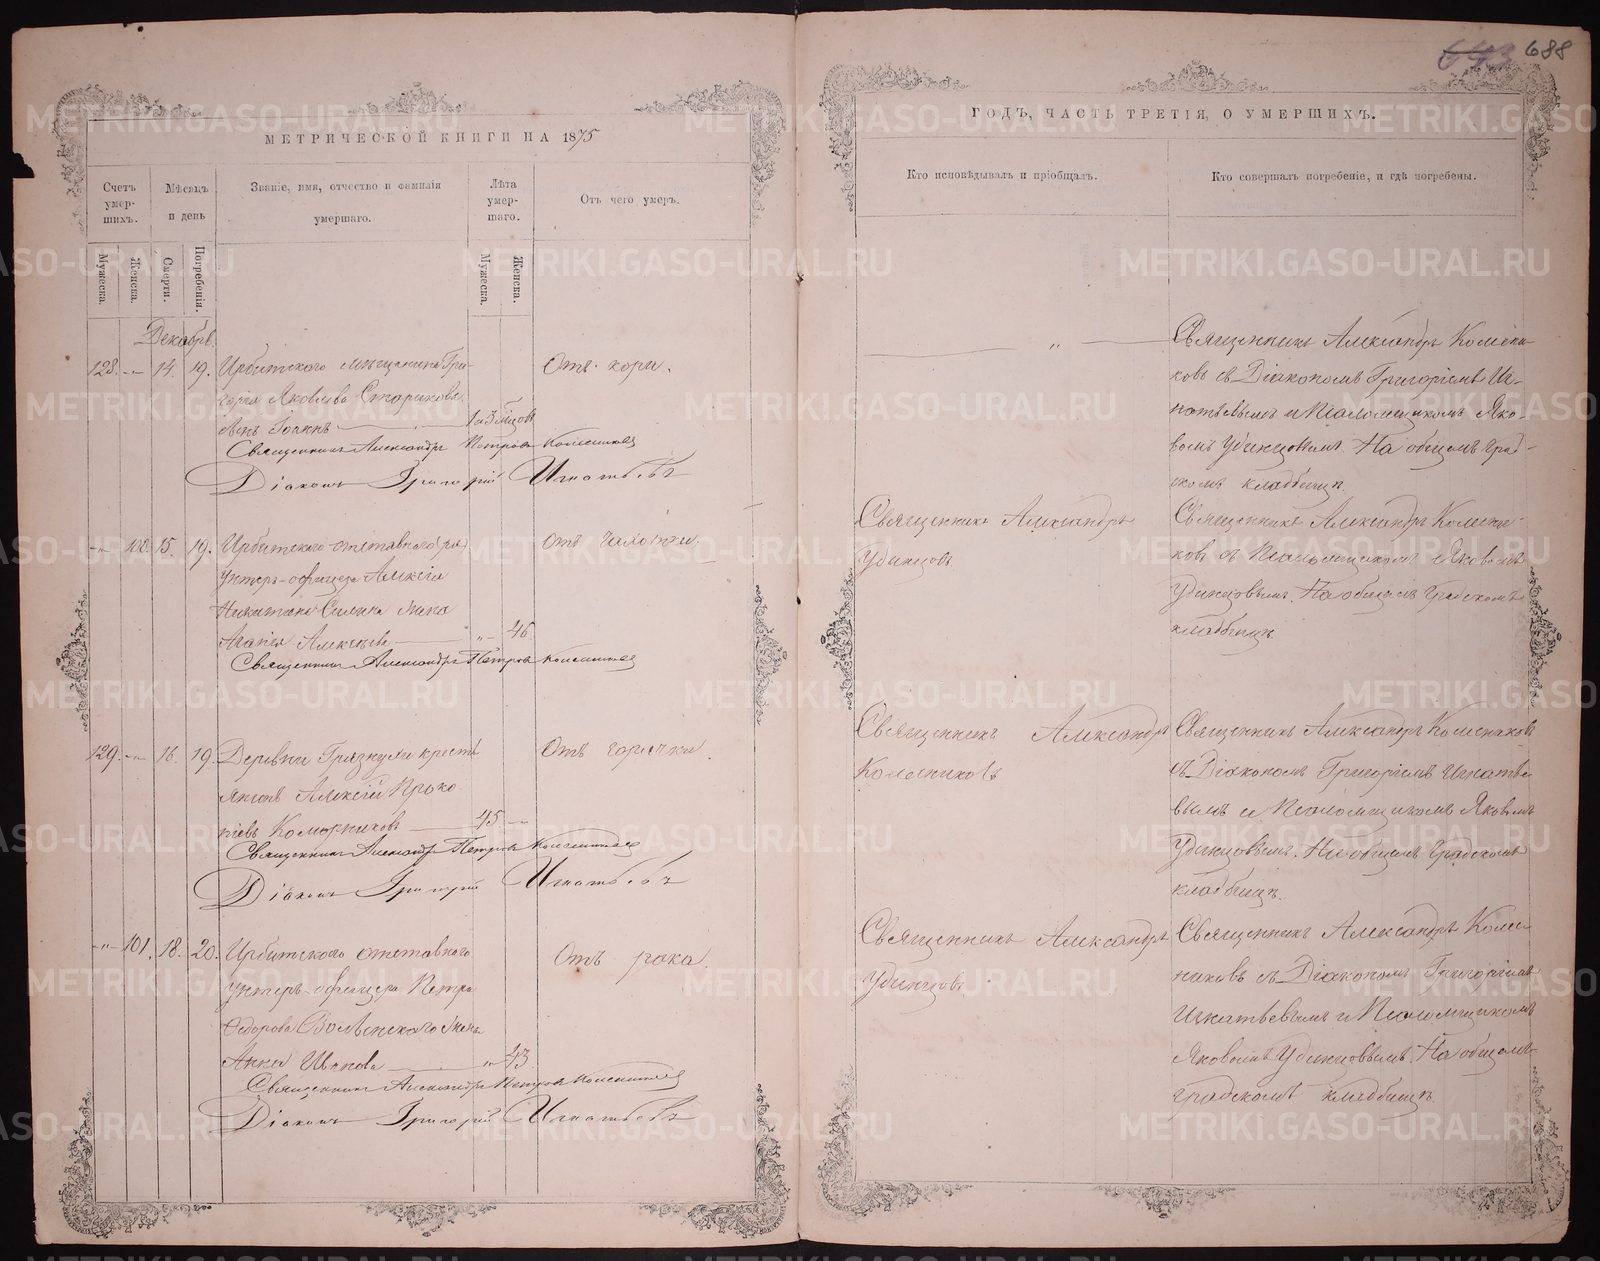 643 688
МЕТРИЧЕСКОЙ КНИГИ НА 1875
ГОДЪ, ЧАСТЬ ТРЕТІЯ, О УМЕРШИХЪ.
Счетъ умер-шихъ.
Мѣсяцъ и день
Званіе, имя, отчество и фамилія
умершаго.
Лѣта умер-шаго.
Отъ чего умеръ.
Кто исповѣдывалъ и пріобщалъ.
Кто совершалъ погребеніе, и гдѣ погребены.
Мужеска.
Женска.
Смерти.
Погребенія.
Мужеска.
Женска.
Декабрь
128. -„- 14. 19. Ирбитскаго мѣщанина Гри-
горія Яковлева Старикова
сынъ Іоаннъ 1 и 3 мѣсяц
Отъ кори.
Священникъ Александръ Петровъ Колесниковъ
Діаконъ Григорій Игнатьевъ
„
Священникъ Александръ Колесни-
ковъ съ Діакономъ Григоріемъ Иг-
натьевымъ и Псаломщикомъ Яко-
вомъ Удинцовымъ. На общемъ град-
скомъ кладбищѣ.
-„- 100. 15. 19. Ирбитскаго отставнаго
унтеръ-офицера Алексія
Никитина Силина жена
Алексѣева „ 46.
Отъ чахотки.
Священникъ Александръ Петровъ Колесниковъ
Священникъ Александръ
Удинцовъ.
Священникъ Александръ Колесни-
ковъ съ Псаломщикомъ Яковомъ
Удинцовымъ. На общемъ градскомъ
кладбищѣ.
129. -„- 16. 19. Деревни Грязнухи кресть-
янинъ Алексій Проко-
піевъ Коморниковъ 45. -„-
Отъ горячки.
Священникъ Александръ Петровъ Колесниковъ
Діаконъ Григорій Игнатьевъ
Священникъ Александръ
Колесниковъ
Священникъ Александръ Колесниковъ
съ Діакономъ Григоріемъ Игнатье-
вымъ и Псаломщикомъ Яковомъ
Удинцовымъ. На общемъ градскомъ
кладбищѣ.
-„- 101. 18. 20. Ирбитскаго отставнаго
унтеръ-офицера Петра
Ѳедорова Волынскаго жена
Анна Иванова „ 43.
Отъ рака.
Священникъ Александръ Петровъ Колесниковъ
Діаконъ Григорій Игнатьевъ
Священникъ Александръ
Удинцовъ.
Священникъ Александръ Колес-
никовъ съ Діакономъ Григоріемъ
Игнатьевымъ и Псаломщикомъ
Яковомъ Удинцовымъ. На общемъ
градскомъ кладбищѣ.
METRIKI.GASO-URAL.RU